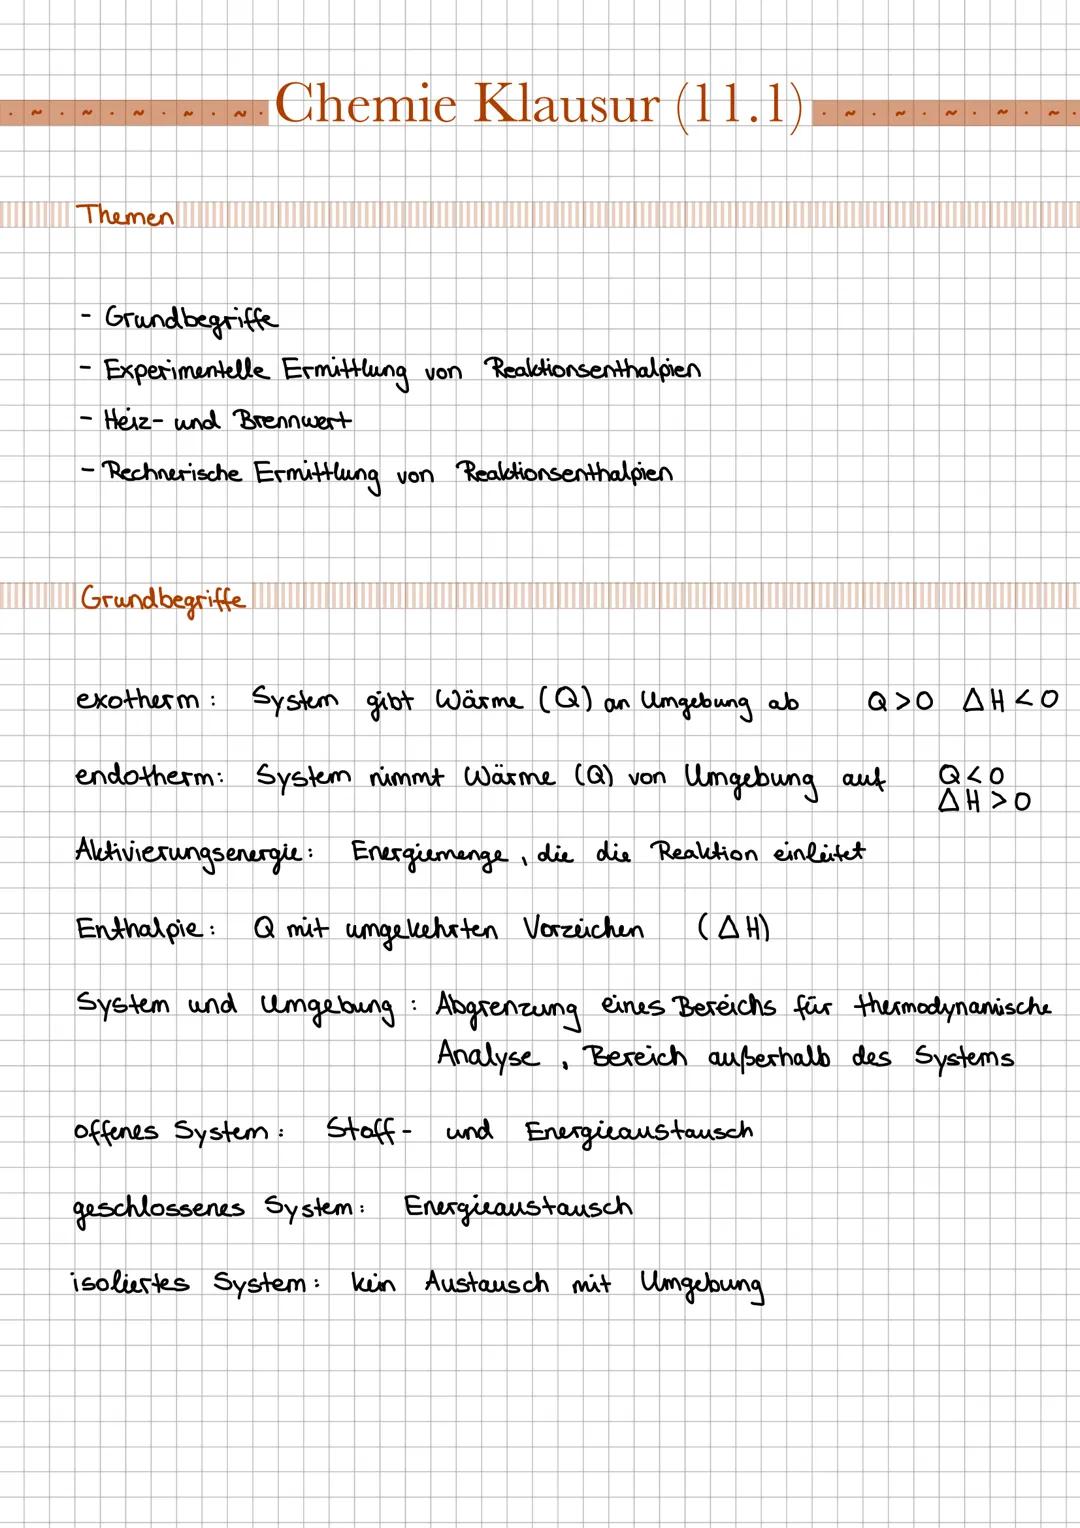 Chemie Klausur (11.1)
Themen
- Grundbegriffe
- Experimentelle Ermittlung von Reaktionsenthalpien
- Heiz- und Brennwert
- Rechnerische Ermittlung von Reaktionsenthalpien
Grundbegriffe
exotherm: System gibt Wärme (Q) an Umgebung ab Q>0 ΔH<0
endotherm: System nimmt Wärme (Q) von Umgebung auf Q<0
ΔH>0
Aktivierungsenergie: Energiemenge, die die Reaktion einleitet
Enthalpie: Q mit umgekehrten Vorzeichen (ΔH)
System und Umgebung: Abgrenzung eines Bereichs für thermodynamische
Analyse, Bereich außerhalb des Systems
offenes System: Stoff- und Energieaustausch
geschlossenes System: Energieaustausch
isoliertes System: kein Austausch mit Umgebung